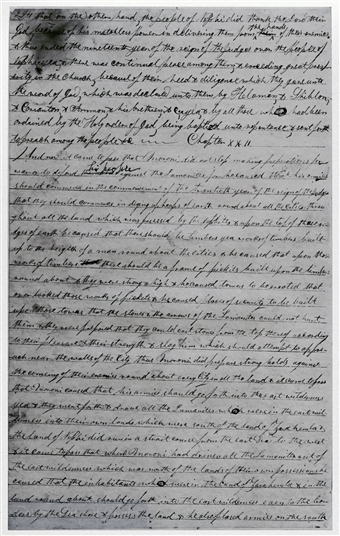 & it on the other hand, the people of Nephi did thank the Lord their
God because of his matchless power in delivering them from the hands of their enemies
& thus ended the nineteenth year of the reign of the Judges over the people of
Nephi yea & there was continual peace among them & exceding great pros-
perity in the Church because of their heed & diligence which they gave unto
the word of God which was declared unto them by Helaman & Shiblon
& Corianton & Ammon & his brethren &c yea & by all those who had been
ordained by the Holy order of God being baptised unto repentance & sent forth
to preach among the people &c Chapter XXII
And now it came to pass that Moroni did not stop making preparations for
war or to defend his people against the Lamanites for he caused that his armies
should commence in the commencement of the Twentieth year of the reign of the Judges
that they should commence in diging up heaps of earth round about all the Cities through-
out all the land which was possessed by the Nephites & upon the top of these rid-
ges of earth he caused that there should be timbers yea works of timbers built
up to the heighth of a man round about the cities & he caused that upon those
works of timbers there should be a frame of pickets built upon the timbers
round about & they were strong & high & he caused towers to be erected that
over looked those works of pickets & he caused places of security to be built
upon those towers that the stones & the arrows of the Lamanites could not hurt
them & they were prepared that they could cast stones from the top thereof according
to their pleasure & their strength & slay him which should attempt to approa-
ch near the walls of the City thus Moroni did prepare strong holds against
the coming of their enemies round about every City in all the land & it came to pass
that Moroni caused that his armies should go forth into the east wilderness
yea & they went forth & drove all the Lamanites which were in the east wil-
derness into their own lands which were south of the land of Zarahemla &
the land of Nephi did run in a strait course from the east Sea to the west
& it came to pass that when Moroni had driven all the Lamanites out of
the east wilderness which was north of the lands of their own possessions he
caused that the inhabitants which were in the land of Zarahemla & in the
land round about should go forth into the east wilderness even to the bor-
ders by the Sea shore & possess the land & he also placed armies on the south